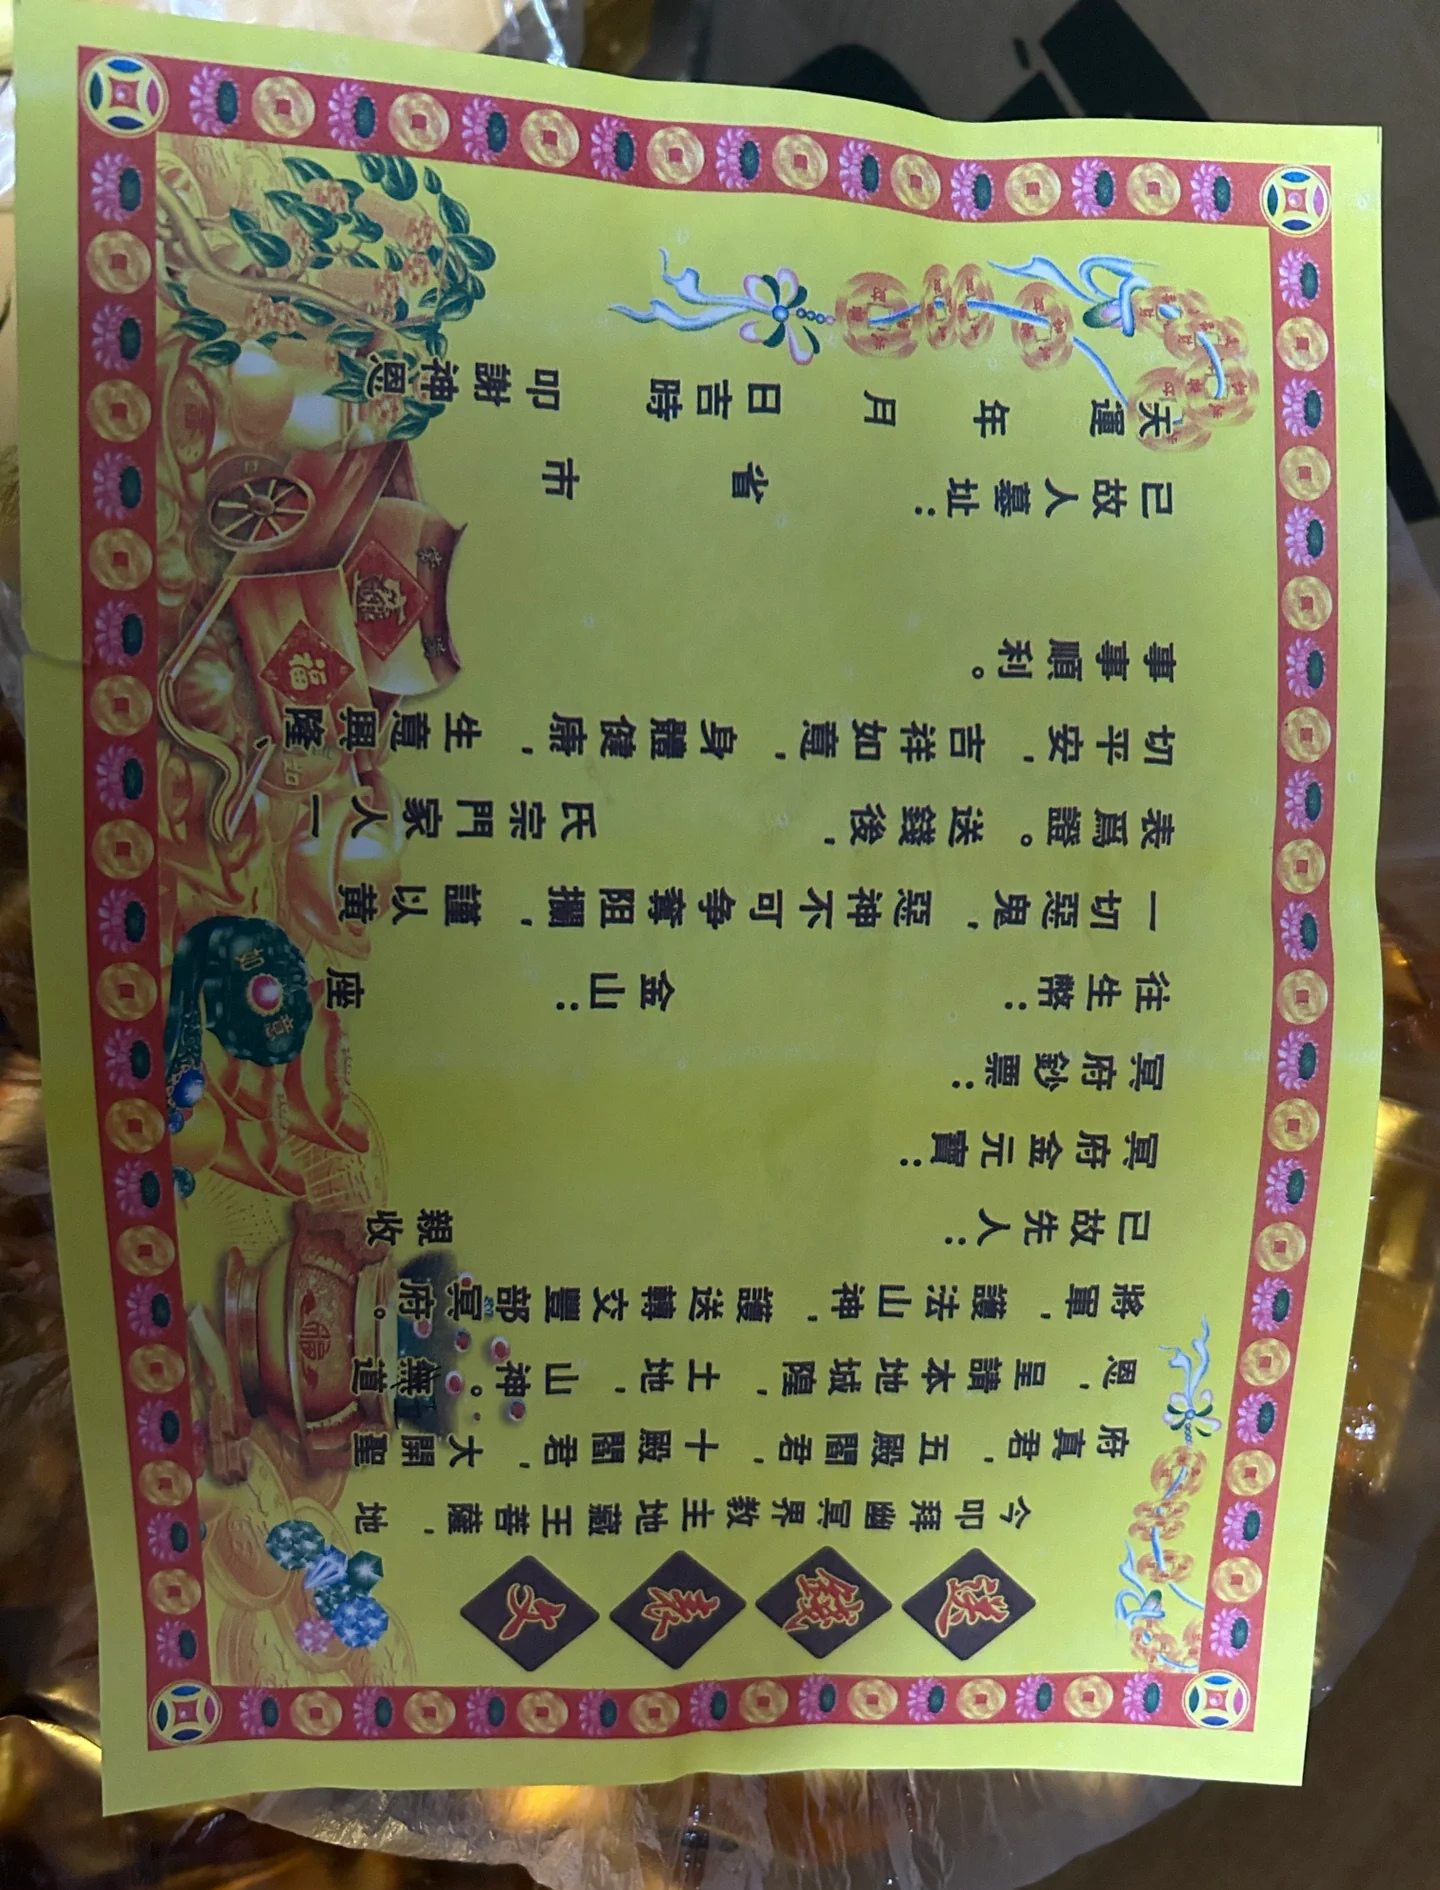 送錢表文
今叩拜幽冥界教主地藏王菩薩，地
府真君，五殿閻君，十殿閻君，大開聖
恩，呈請本地城隍，土地，山神。無道
將軍，護法山神，護送轉交豐部冥府。
已故先人： 親收
冥府金元寶：
冥府鈔票：
往生幣： 金山： 座
一切惡鬼，惡神不可争奪阻攔，謹以黄
表爲證。送錢後， 氏宗門家人一
切平安，吉祥如意，身體健康，生意興隆、
事事順利。
已故人墓址： 省 市
天運 年 月 日吉時 叩謝神恩
如意
福
福